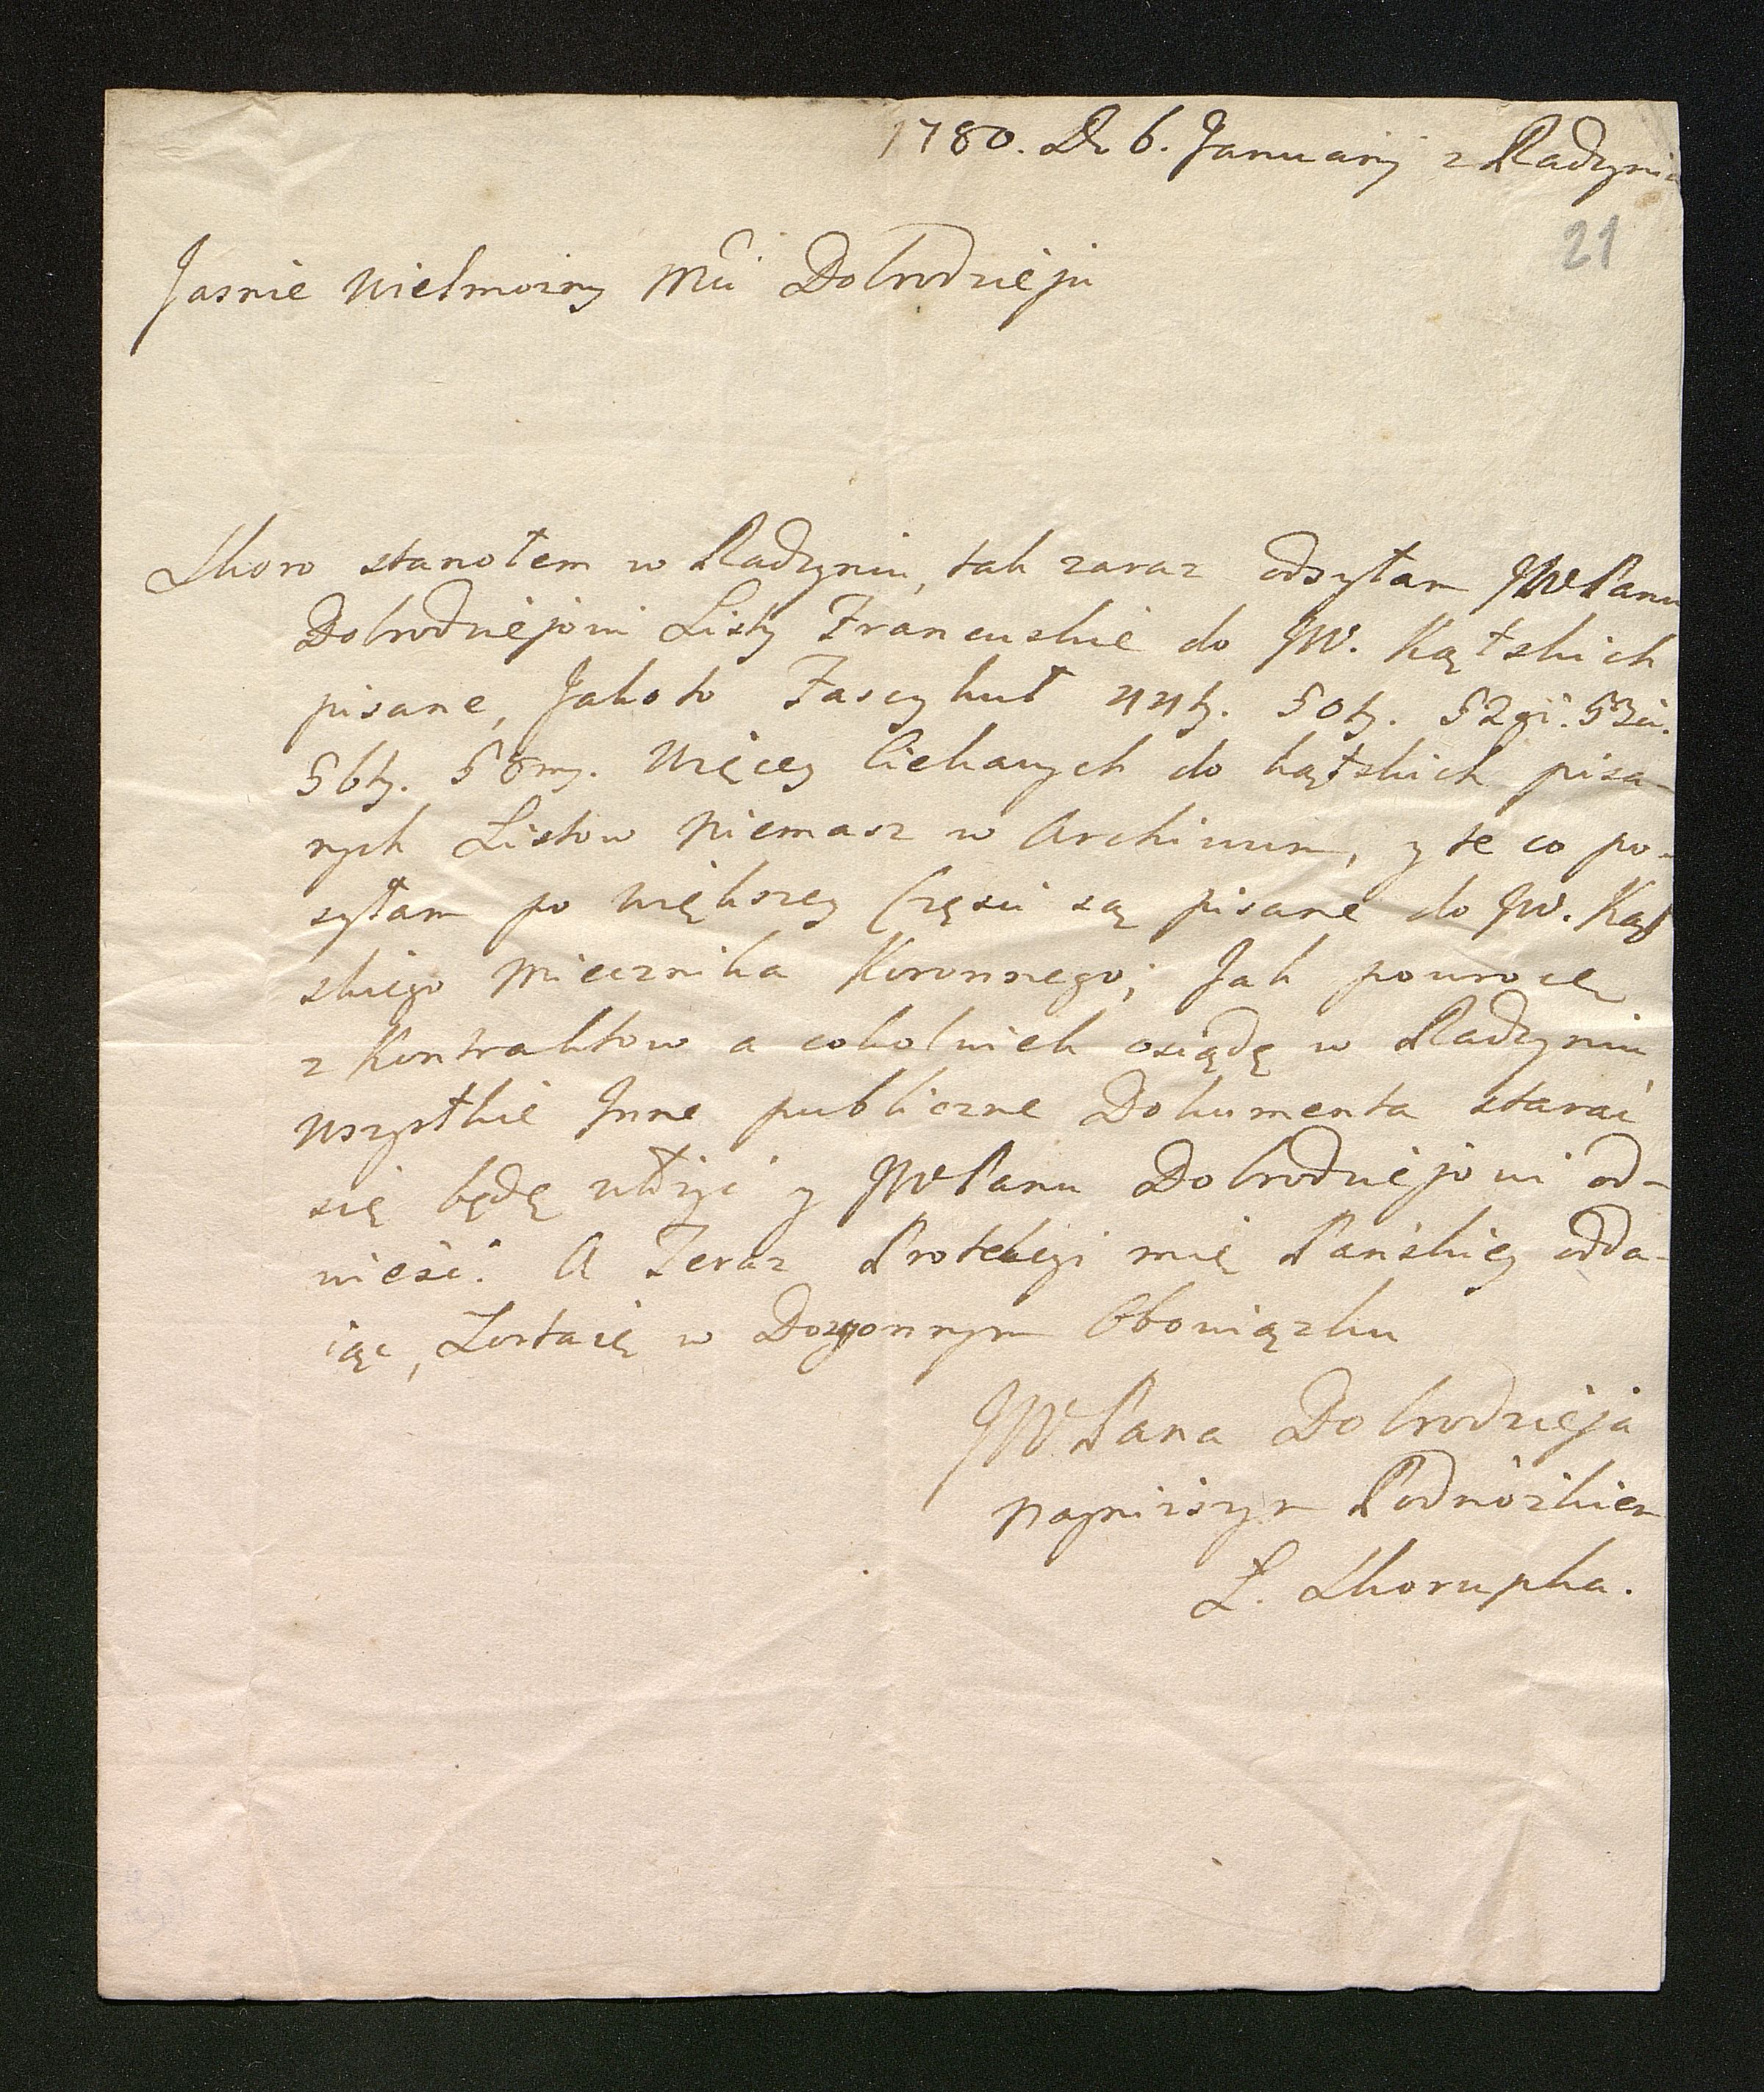 1780. D. 6. Januarij z Radzynia
21
Jasnie Wielmozny Mci Dobrodzieju
Skoro stanołem w Radzyniu, tak zaraz odsyłam JWPanu
Dobrodziejowi Listy Francuskie do JW. Kątskich
pisane, Jako to Fascykuł 44ty. 50ty. 52gi. 53ci.
56ty. 58my. Więcey Ciekawych do kątskich pisa-
nych Listow Niemasz w Archiwum, y te co po-
syłam po większey Części są pisane do JW. Kąt
skiego Miecznika Koronnego; Jak powrocę
z Kontraktow a cokolwiek osiądę w Radzyniu
Wszystkie Inne publiczne Dokumenta starać
się będę złożyć y JWPanu Dobrodziejowi od-
wieść. A Teraz Protekcyi mię Pańskiey odda-
iąc, Zostaię w Dozgonnym Obowiązku
JWPana Dobrodzieja
Nayniszym Podnóżkiem
L. Skorupka.